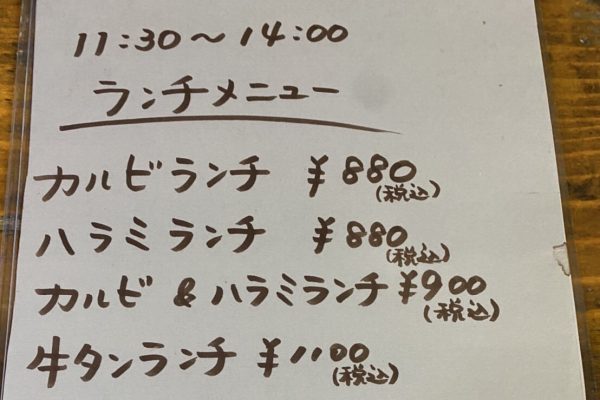 11:30〜14:00
ランチメニュー
カルビランチ ¥880(税込)
ハラミランチ ¥880(税込)
カルビ&ハラミランチ¥900(税込)
牛タンランチ ¥1100(税込)